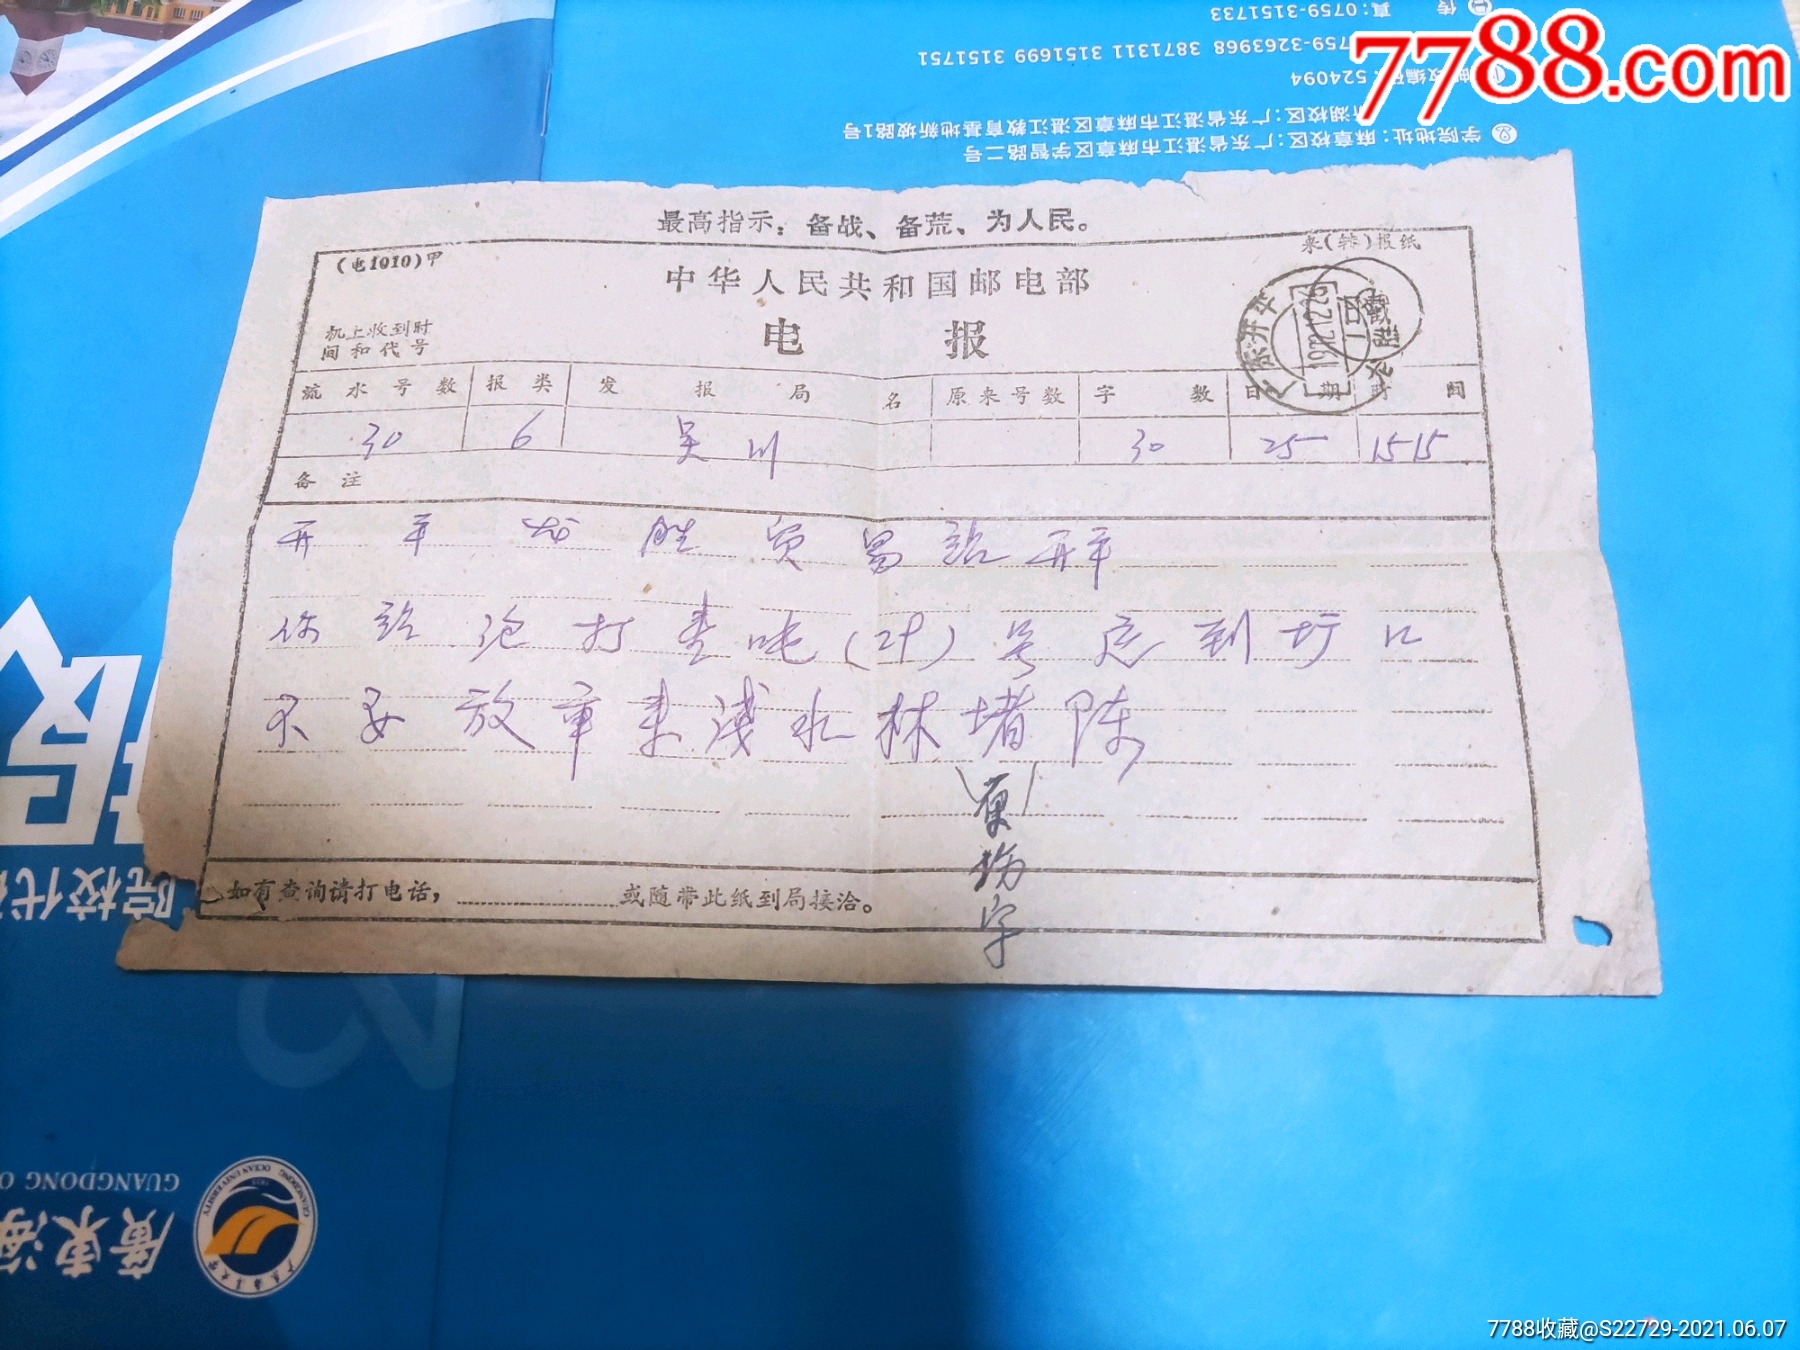 7788.com
真:0759-3151733
759-3263968 38711311 3151699 3151751
524094
湖校区:广东省湛江市麻章区湛江教育基地新坡路1号
学院地址:麻章校区:广东省湛江市麻章区学智路二号
最高指示:备战、备荒、为人民。
(电1010)甲
来(转)报纸
中华人民共和国邮电部
电报
机上收到时
间和代号
广东开平
1972.12.26
流水号数 报类 发报局名 原来号数 字数 日期 时间
30 6 吴川 30 25 1515
备注
开平 胜贸易站开平
你站 打 吨 号 到圩口
不要放 来浅水林堵陈
如有查询请打电话, 或随带此纸到局接洽。
字
院校代
GUANGDONG O
廣東海
7788收藏@S22729-2021.06.07